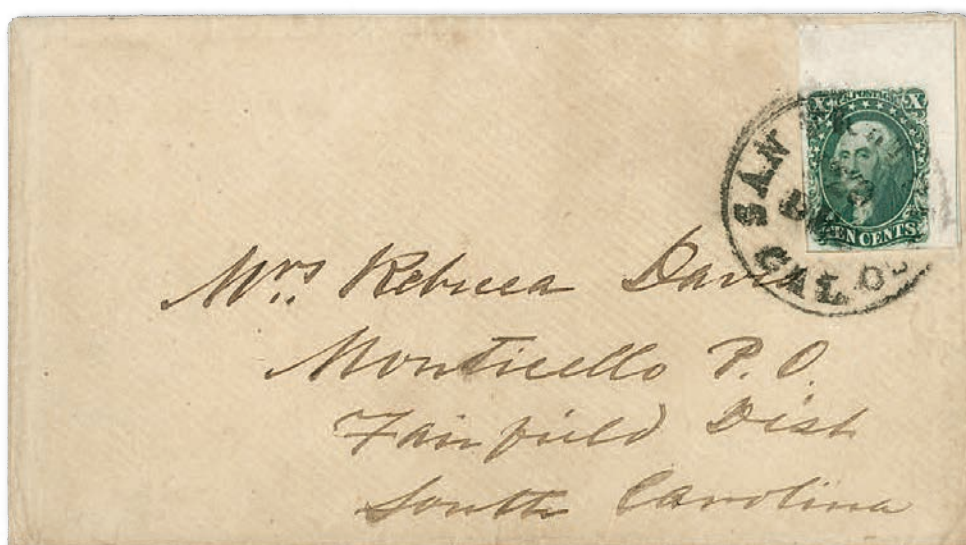 X U.S. POSTAGE X
TEN CENTS
SAN
CAL.
Mrs. Rebecca David
Monticello P.O.
Fairfield Dist
South Carolina